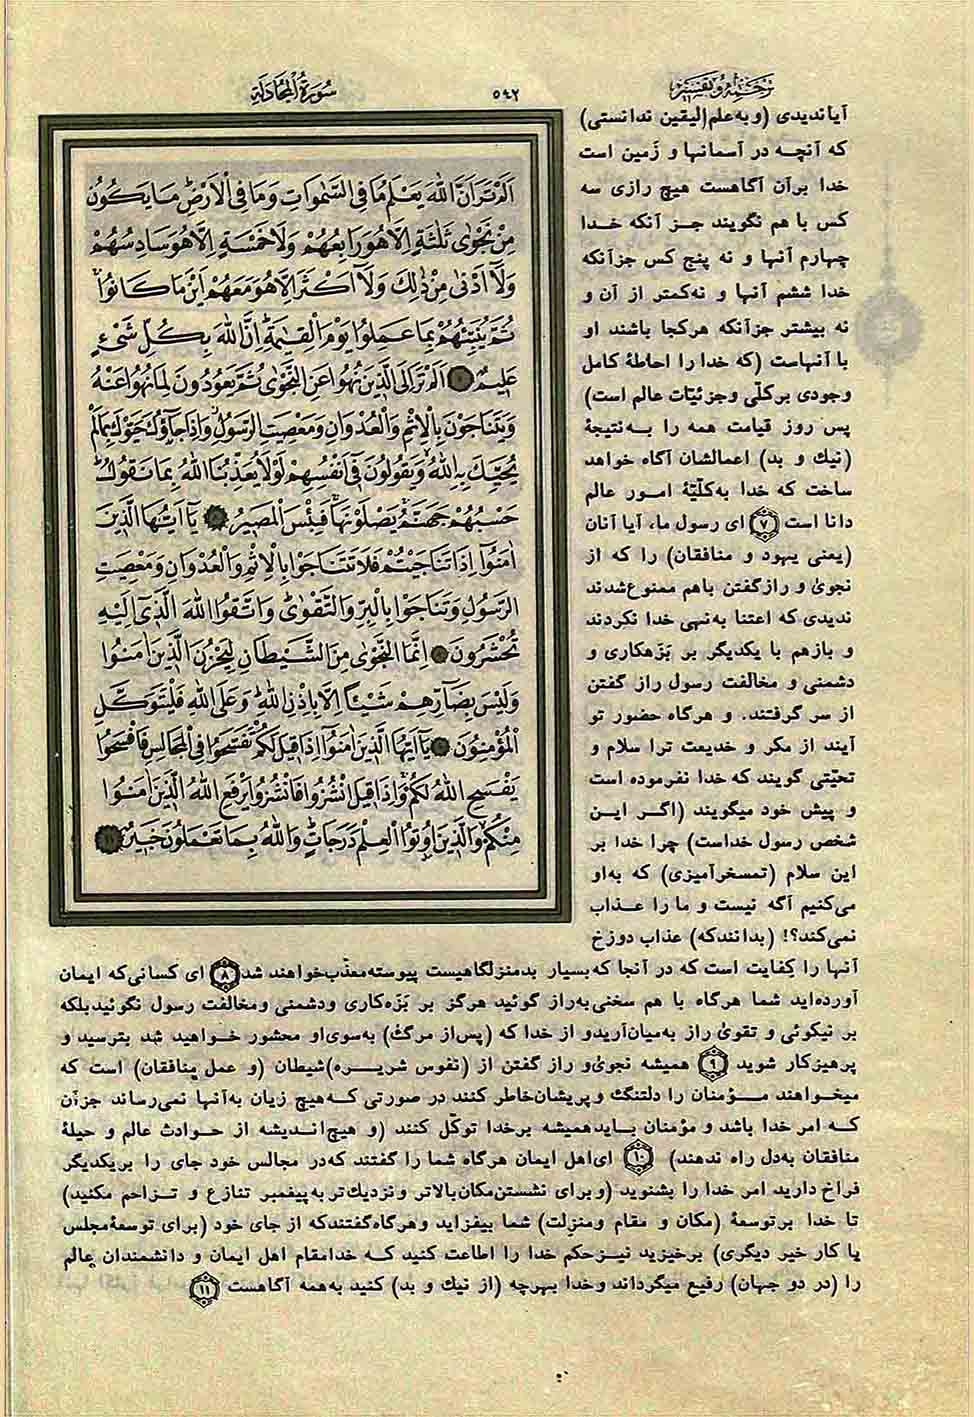 ترجمه و تفسیر
٥٤٢
سُورَةُ الْمُجَادَلَةِ
اَلَمْ تَرَ اَنَّ اللّٰهَ يَعْلَمُ مَا فِى السَّمٰوَاتِ وَمَا فِى الْاَرْضِ مَا يَكُونُ
مِنْ نَجْوٰى ثَلٰثَةٍ اِلَّا هُوَ رَابِعُهُمْ وَلَا خَمْسَةٍ اِلَّا هُوَ سَادِسُهُمْ
وَلَا اَدْنٰى مِنْ ذٰلِكَ وَلَا اَكْثَرَ اِلَّا هُوَ مَعَهُمْ اَيْنَ مَا كَانُوا
ثُمَّ يُنَبِّئُهُمْ بِمَا عَمِلُوا يَوْمَ الْقِيٰمَةِ اِنَّ اللّٰهَ بِكُلِّ شَىْءٍ
عَلِيمٌ اَلَمْ تَرَ اِلَى الَّذِينَ نُهُوا عَنِ النَّجْوٰى ثُمَّ يَعُودُونَ لِمَا نُهُوا عَنْهُ
وَيَتَنَاجَوْنَ بِالْاِثْمِ وَالْعُدْوَانِ وَمَعْصِيَتِ الرَّسُولِ وَاِذَا جَاؤُكَ حَيَّوْكَ بِمَا لَمْ
يُحَيِّكَ بِهِ اللّٰهُ وَيَقُولُونَ فِى اَنْفُسِهِمْ لَوْلَا يُعَذِّبُنَا اللّٰهُ بِمَا نَقُولُ
حَسْبُهُمْ جَهَنَّمُ يَصْلَوْنَهَا فَبِئْسَ الْمَصِيرُ يَا اَيُّهَا الَّذِينَ
اٰمَنُوا اِذَا تَنَاجَيْتُمْ فَلَا تَتَنَاجَوْا بِالْاِثْمِ وَالْعُدْوَانِ وَمَعْصِيَتِ
الرَّسُولِ وَتَنَاجَوْا بِالْبِرِّ وَالتَّقْوٰى وَاتَّقُوا اللّٰهَ الَّذِى اِلَيْهِ
تُحْشَرُونَ اِنَّمَا النَّجْوٰى مِنَ الشَّيْطَانِ لِيَحْزُنَ الَّذِينَ اٰمَنُوا
وَلَيْسَ بِضَارِّهِمْ شَيْئًا اِلَّا بِاِذْنِ اللّٰهِ وَعَلَى اللّٰهِ فَلْيَتَوَكَّلِ
الْمُؤْمِنُونَ يَا اَيُّهَا الَّذِينَ اٰمَنُوا اِذَا قِيلَ لَكُمْ تَفَسَّحُوا فِى الْمَجَالِسِ فَافْسَحُوا
يَفْسَحِ اللّٰهُ لَكُمْ وَاِذَا قِيلَ انْشُزُوا فَانْشُزُوا يَرْفَعِ اللّٰهُ الَّذِينَ اٰمَنُوا
مِنْكُمْ وَالَّذِينَ اُوتُوا الْعِلْمَ دَرَجَاتٍ وَاللّٰهُ بِمَا تَعْمَلُونَ خَبِيرٌ
آیا ندیدی (و به علم الیقین ندانستی)
که آنچه در آسمانها و زَمین است
خدا برآن آگاهست هیچ رازی سه
کس با هم نگویند جز آنکه خدا
چهارم آنها و نه پنج کس جزآنکه
خدا ششم آنها و نه‌کمتر از آن و
نه بیشتر جزآنکه هرکجا باشند او
با آنهاست (که خدا را احاطهٔ کامل
وجودی برکلّی وجزئیّات عالم است)
پس روز قیامت همه را به‌نتیجهٔ
(نیك و بد) اعمالشان آگاه خواهد
ساخت که خدا به‌کلّیّهٔ امور عالم
دانا است ۷ ای رسول ما، آیا آنان
(یعنی یهود و منافقان) را که از
نجوی و رازگفتن باهم ممنوع‌شدند
ندیدی که اعتنا به‌نهی خدا نکردند
و بازهم با یکدیگر بر بَزَهکاری و
دشمنی و مخالفت رسول راز گفتن
از سر گرفتند. و هرگاه حضور تو
آیند از مکر و خدیعت ترا سلام و
تحیّتی گویند که خدا نفرموده است
و پیش خود میگویند (اگر این
شخص رسول خداست) چرا خدا بر
این سلام (تمسخرآمیزی) که به‌او
می‌کنیم آگه نیست و ما را عذاب
نمی‌کند؟! (بدانندکه) عذاب دوزخ
آنها را کِفایت است که در آنجا که‌بسیار بدمنزلگاهیست پیوسته‌معذّب‌خواهند شد ۸ ای کسانی‌که ایمان
آورده‌اید شما هرگاه با هم سخنی‌به‌راز گوئید هرگز بر بَزَه‌کاری ودشمنی ومخالفت رسول نگوئیدبلکه
بر نیکوئی و تقویٰ راز به‌میان‌آریدو از خدا که (پس‌از مرگ) به‌سوی‌او محشور خواهید شد بترسید و
پرهیزکار شوید ۹ همیشه نجوی‌و راز گفتن از (نفوس شریره)شیطان (و عمل منافقان) است که
میخواهند مؤمنان را دلتنگ وپریشان‌خاطر کنند در صورتی که‌هیچ زیان به‌آنها نمی‌رساند جزآن
که امر خدا باشد و مؤمنان باید‌همیشه برخدا توکّل کنند (و هیچ‌اندیشه از حوادث عالم و حیلهٔ
منافقان به‌دل راه ندهند) ۱۰ ای‌اهل ایمان هرگاه شما را گفتند که‌در مجالس خود جای را بریکدیگر
فراخ دارید امر خدا را بشنوید (وبرای نشستن‌مکان‌بالاتر ونزدیك‌تر به‌پیغمبر تنازع و تزاحم مکنید)
تا خدا برتوسعهٔ (مکان و مقام ومنزلت) شما بیفزاید وهرگاه‌گفتندکه از جای خود (برای توسعهٔ‌مجلس
یا کار خیر دیگری) برخیزید نیزحکم خدا را اطاعت کنید که خدامقام اهل ایمان و دانشمندان عالم
را (در دو جهان) رفیع میگرداند وخدا بهرچه (از نیك و بد) کنید به‌همه آگاهست ۱۱